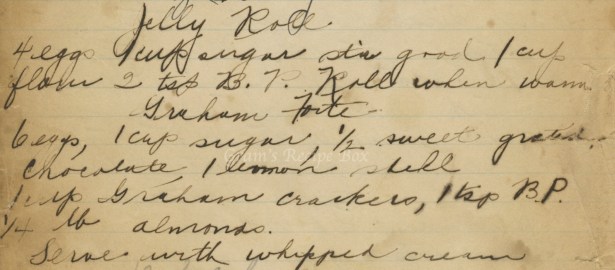 Jelly Roll
4 eggs 1 cup sugar stir good 1 cup
flour 2 tsp B. P. Roll when warm
Graham Torte
6 eggs, 1 cup sugar, 1/2 sweet grated
chocolate 1 lemon shell
1 cup Graham crackers, 1 tsp B.P.
1/4 lb almonds.
Serve with whipped cream